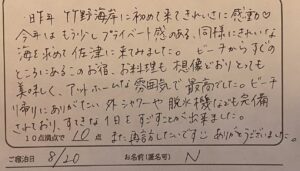 昨年 竹野海岸に初めて来てきれいさに感動♡
今年はもう少しプライベート感のある、同様にきれいな
海を求めて佐津に来てみました。ビーチからすぐの
ところにあるこのお宿、お料理も想像どおりとても
美味しく、アットホームな雰囲気で最高でした。ビーチ
帰りにありがたい外シャワーや脱水機なども完備
されており、すてきな1日をすごすことが出来ました。
10点満点で 10 点 また再訪したいです♡ ありがとうございました。
ご宿泊日 8/20 お名前(匿名可) N